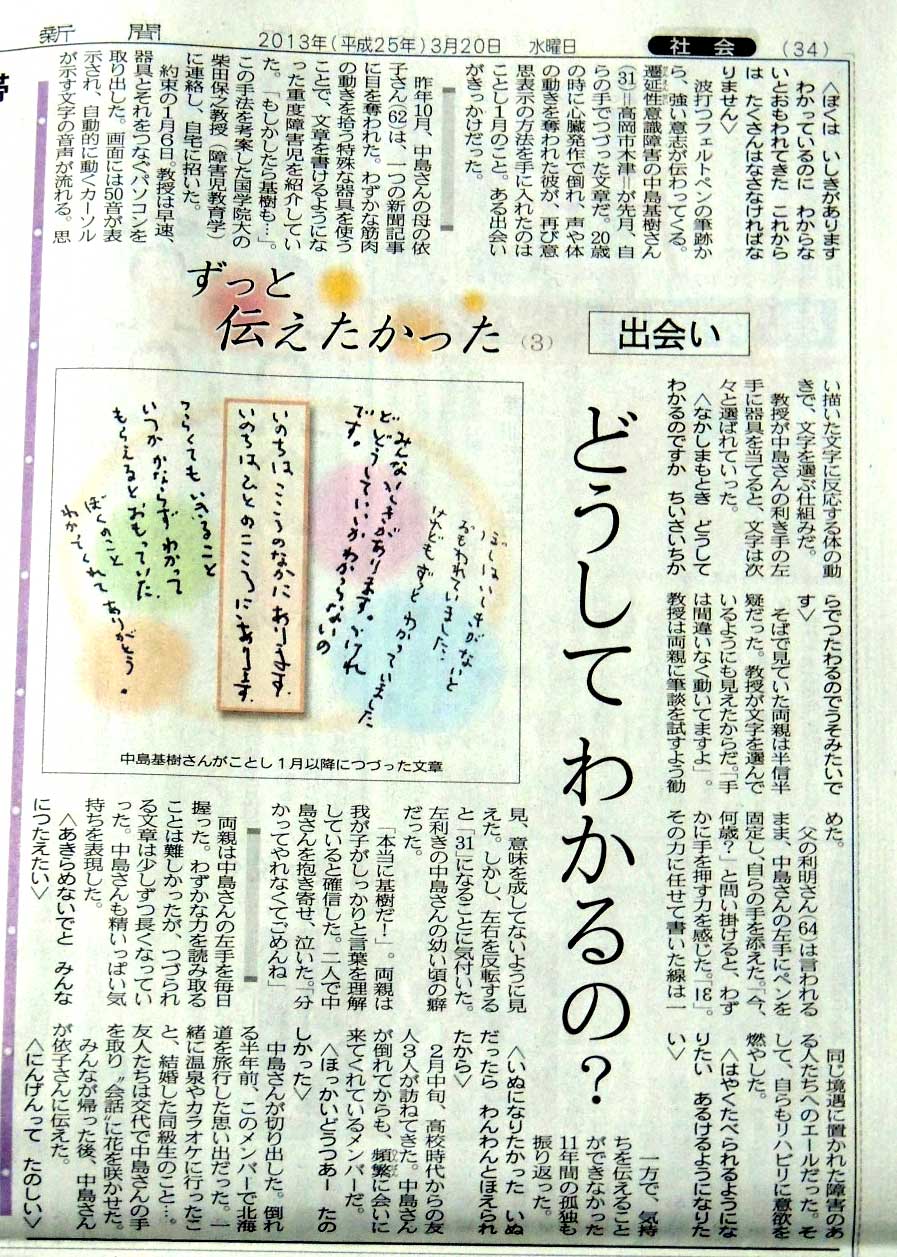 新聞
2013年(平成25年)3月20日 水曜日
社会
(34)
〈ぼくは いしきがあります
わかっているのに わからな
いとおもわれてきた これから
は たくさんはなさなければな
りません〉
波打つフェルトペンの筆跡か
ら、強い意志が伝わってくる。
遷延性意識障害の中島基樹さん
(31)=高岡市木津=が先月、自
らの手でつづった文章だ。20歳
の時に心臓発作で倒れ、声や体
の動きを奪われた彼が、再び意
思表示の方法を手に入れたのは
ことし1月のこと。ある出会い
がきっかけだった。
昨年10月、中島さんの母の依
子さん(62)は、一つの新聞記事
に目を奪われた。わずかな筋肉
の動きを拾う特殊な器具を使う
ことで、文章を書けるようにな
った重度障害児を紹介してい
た。「もしかしたら基樹も…」。
この手法を考案した国学院大の
柴田保之教授(障害児教育学)
に連絡し、自宅に招いた。
約束の1月6日。教授は早速、
器具とそれをつなぐパソコンを
取り出した。画面には50音が表
示され、自動的に動くカーソル
が示す文字の音声が流れる。思
ずっと
伝えたかった
(3)
出会い
どうして わかるの?
い描いた文字に反応する体の動
きで、文字を選ぶ仕組みだ。
教授が中島さんの利き手の左
手に器具を当てると、文字は次
々と選ばれていった。
〈なかしまもとき どうして
わかるのですか ちいさいちか
らでつたわるのでうそみたいで
す〉
そばで見ていた両親は半信半
疑だった。教授が文字を選んで
いるようにも見えたからだ。「手
は間違いなく動いてますよ」。
教授は両親に筆談を試すよう勧
めた。
父の利明さん(64)は言われる
まま、中島さんの左手にペンを
固定し、自らの手を添えた。「今、
何歳?」と問い掛けると、わず
かに手を押す力を感じた。「18」。
その力に任せて書いた線は一
見、意味を成してないように見
えた。しかし、左右を反転する
と「31」になることに気付いた。
左利きの中島さんの幼い頃の癖
だった。
「本当に基樹だ!」。両親は
我が子がしっかりと言葉を理解
していると確信した。二人で中
島さんを抱き寄せ、泣いた。「分
かってやれなくてごめんね」
両親は中島さんの左手を毎日
握った。わずかな力を読み取る
ことは難しかったが、つづられ
る文章は少しずつ長くなってい
った。中島さんも精いっぱい気
持ちを表現した。
〈あきらめないでと みんな
につたえたい〉
同じ境遇に置かれた障害のあ
る人たちへのエールだった。そ
して、自らもリハビリに意欲を
燃やした。
〈はやくたべられるようにな
りたい あるけるようになりた
い〉
一方で、気持
ちを伝えること
ができなかった
11年間の孤独も
振り返った。
〈いぬになりたかった いぬ
だったら わんわんとほえられ
たから〉
2月中旬、高校時代からの友
人3人が訪ねてきた。中島さん
が倒れてからも、頻繁に会いに
来てくれているメンバーだ。
〈ほっかいどうつあー たの
しかった〉
中島さんが切り出した。倒れ
る半年前、このメンバーで北海
道を旅行した思い出だった。一
緒に温泉やカラオケに行ったこ
と、結婚した同級生のこと…。
友人たちは交代で中島さんの手
を取り“会話”に花を咲かせた。
みんなが帰った後、中島さん
が依子さんに伝えた。
〈にんげんって たのしい〉
ぼくはいしきがないと
おもわれていました。
けれどもずっと わかっていました
みんないしきがあります。けれ
どどうしていいかわからないの
です。
いのちは、こころのなかにあります。
いのちは、ひとのこころにあります。
つらくてもいきること
いつかかならずわかって
もらえるとおもっていた。
ぼくのこと
わかてくれてありがとう。
中島基樹さんがことし1月以降につづった文章